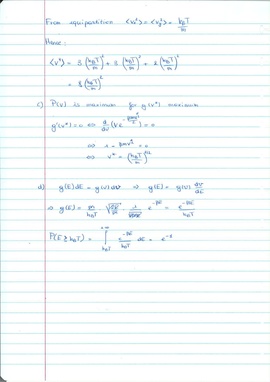 From equipartition ⟨v_x²⟩ = ⟨v_y²⟩ = k_BT/m
Hence:
⟨v⁴⟩ = 3 (k_BT/m)² + 3 (k_BT/m)² + 2 (k_BT/m)²
= 8 (k_BT/m)²
c) P(v) is maximum for g(v*) maximum
g'(v*) = 0 ⇔ d/dv (v e^{-βmv²/2}) = 0
⇔ 1 = βmv²
⇔ v* = (k_BT/m)^{1/2}
d) g(E)dE = g(v)dv ⇒ g(E) = g(v) dv/dE
⇒ g(E) = m/k_BT · √(2E/m) · 1/√(2mE) e^{-βE} = e^{-βE}/k_BT
P(E ≥ k_BT) = ∫_{k_BT}^{+∞} e^{-βE}/k_BT dE = e^{-1}